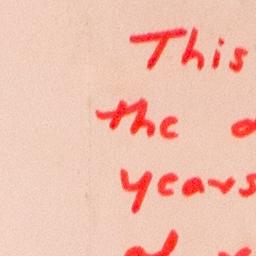 This
the
years